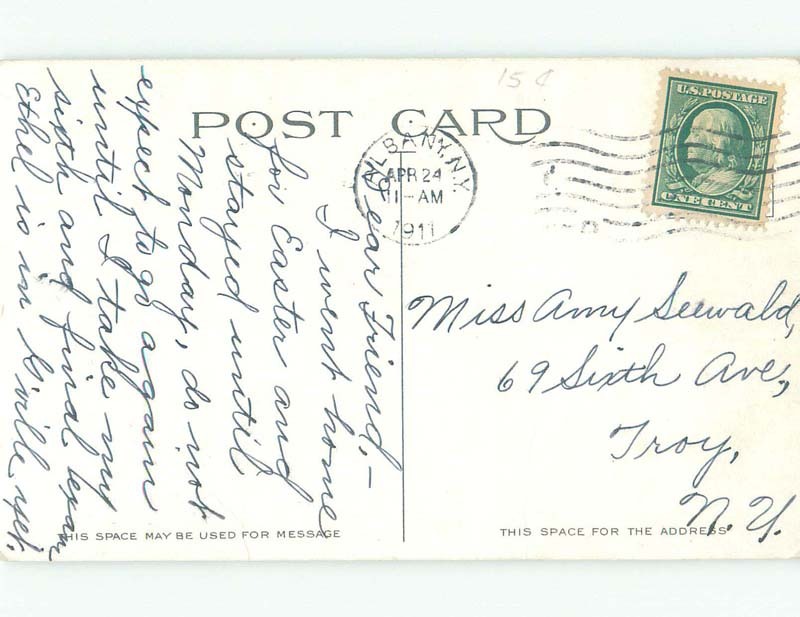 15¢
POST CARD
U.S. POSTAGE
ONE CENT
ALBANY, N.Y.
APR 24
11-AM
1911
Dear Friend,-
I went home
for Easter and
stayed until
Monday, do not
expect to go again
until I take my
sixth and final exam
Ethel is in G'ville yet.
Miss Amy Seewald,
69 Sixth Ave,
Troy,
N.Y.
THIS SPACE MAY BE USED FOR MESSAGE
THIS SPACE FOR THE ADDRESS